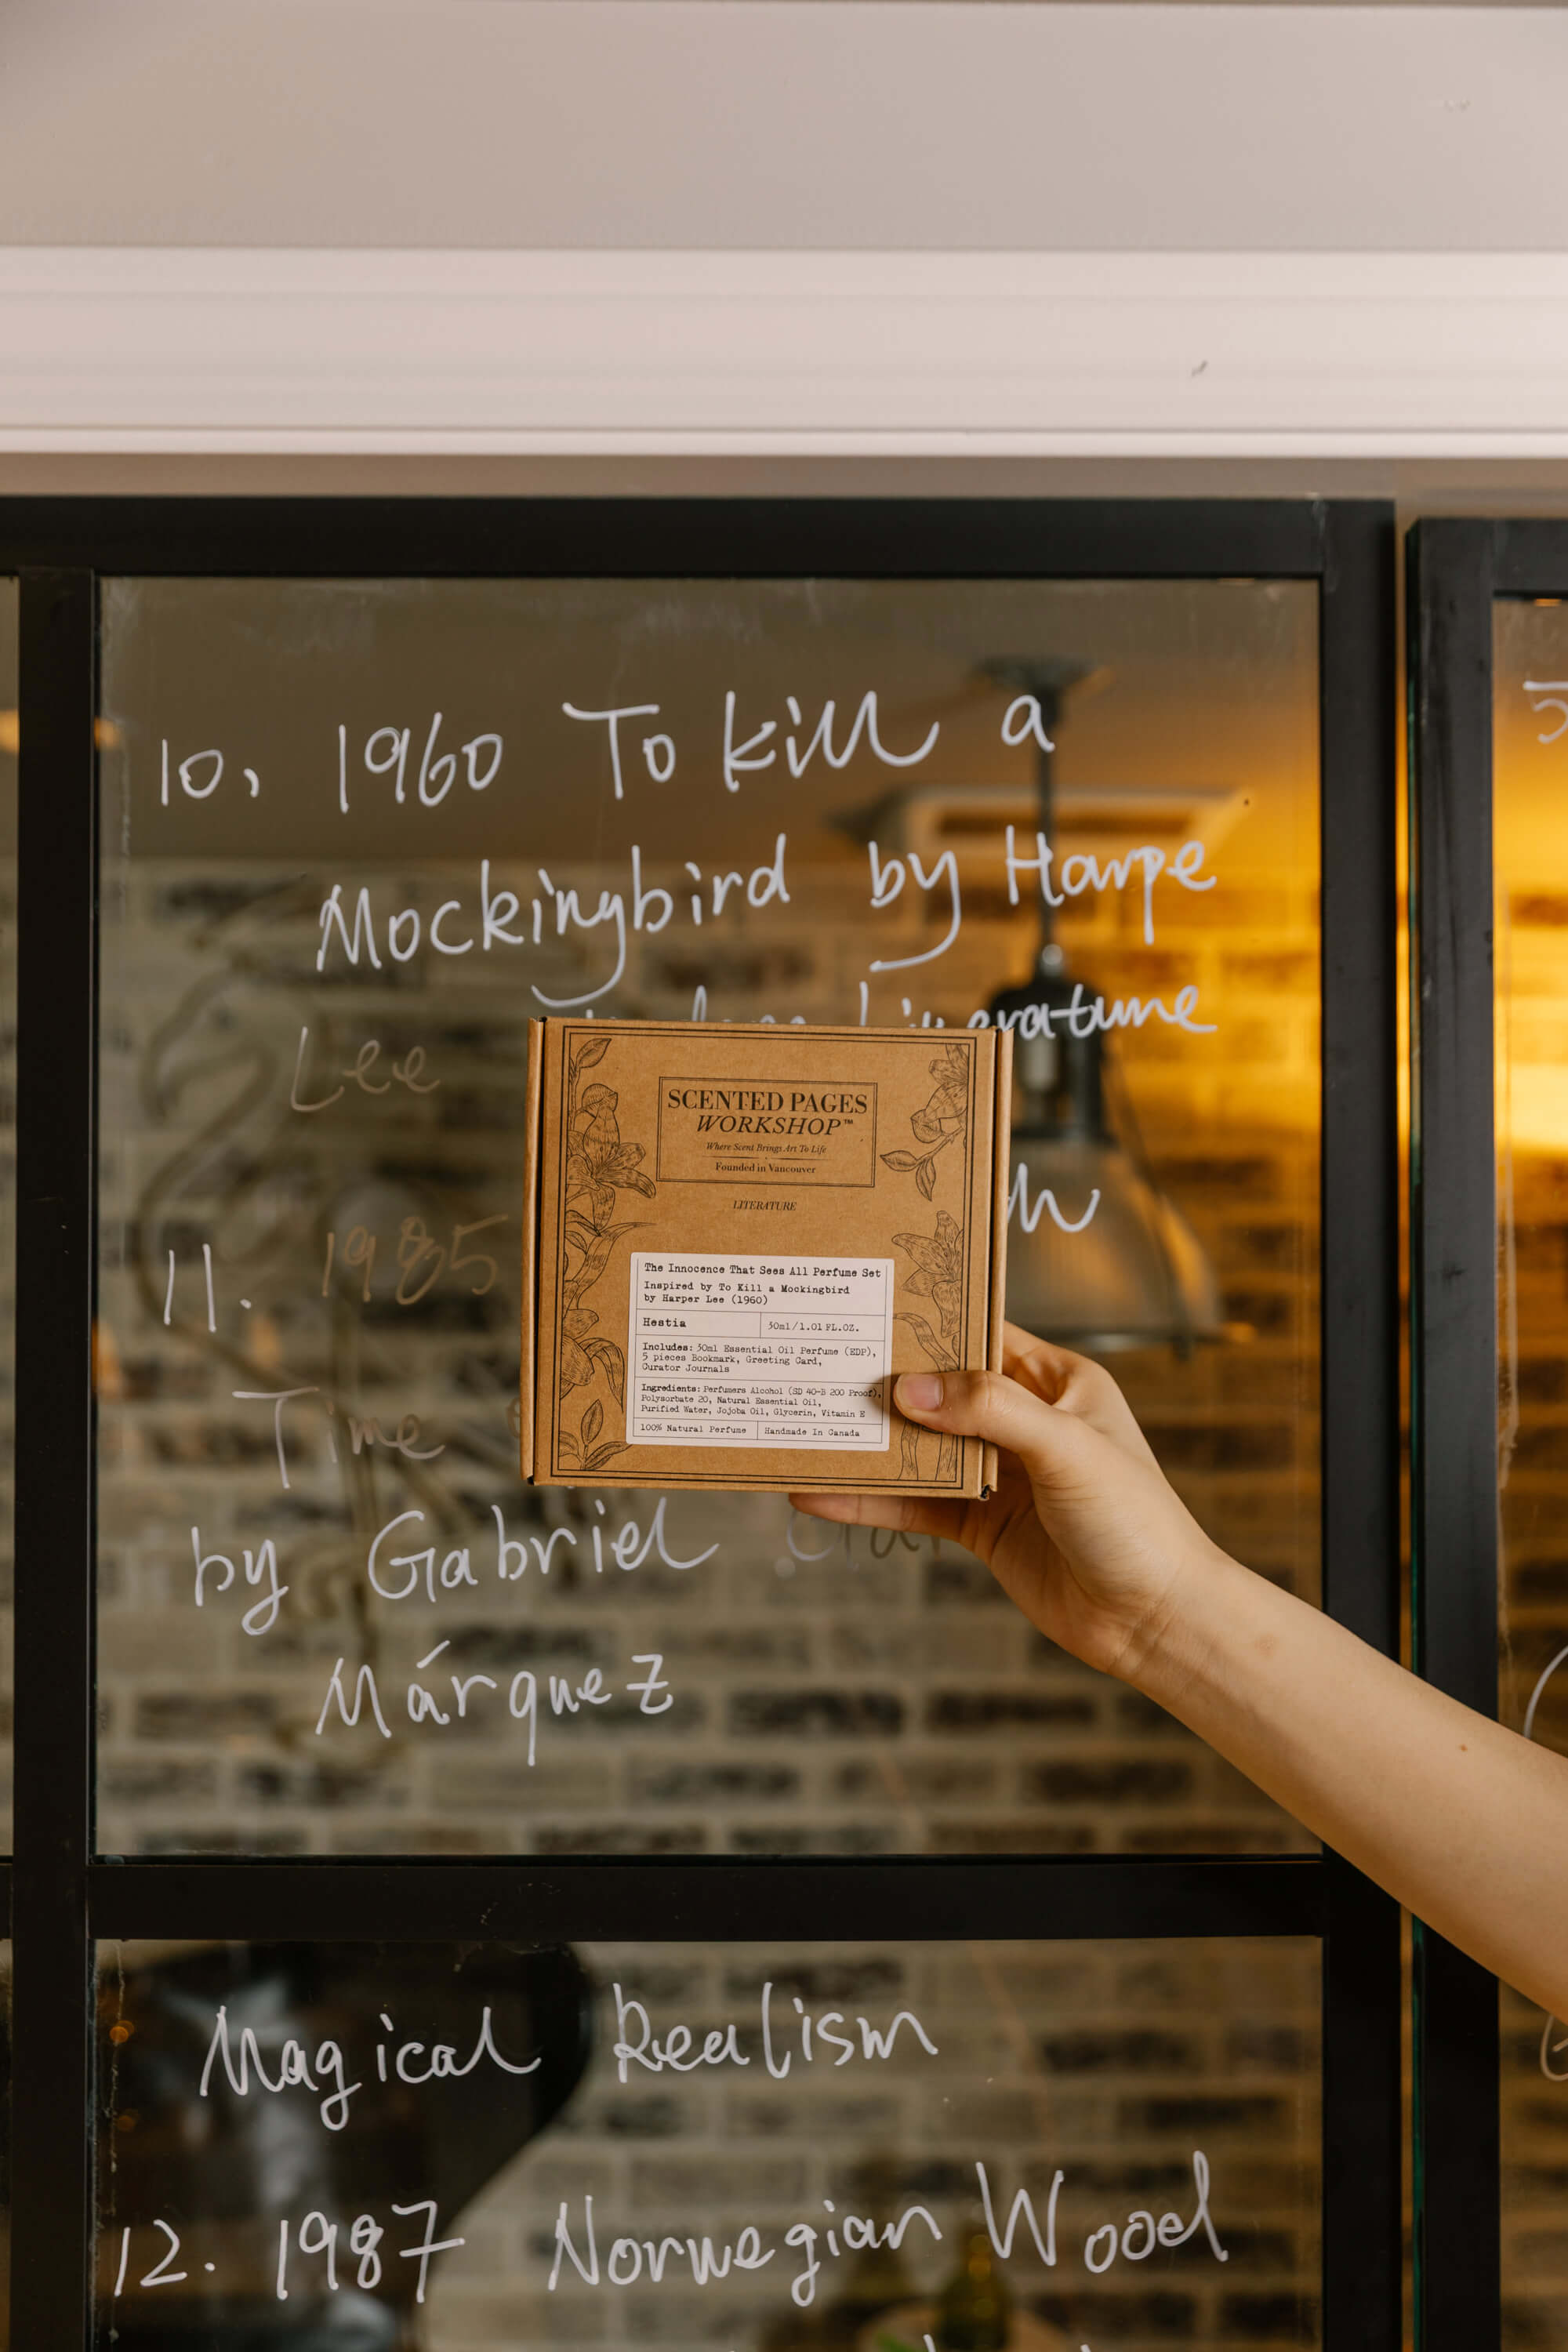 10, 1960 To Kill a
Mockingbird by Harpe
Lee
11. 1985
Time
by Gabriel
Márquez
Magical Realism
12. 1987 Norwegian Wood
SCENTED PAGES
WORKSHOP™
Where Scent Brings Art To Life
Founded in Vancouver
LITERATURE
The Innocence That Sees All Perfume Set
Inspired by To Kill a Mockingbird
by Harper Lee (1960)
Hestia
30ml/1.01 FL.OZ.
Includes: 30ml Essential Oil Perfume (EDP),
5 pieces Bookmark, Greeting Card,
Curator Journals
Ingredients: Perfumers Alcohol (SD 40-B 200 Proof),
Polysorbate 20, Natural Essential Oil,
Purified Water, Jojoba Oil, Glycerin, Vitamin E
100% Natural Perfume
Handmade In Canada